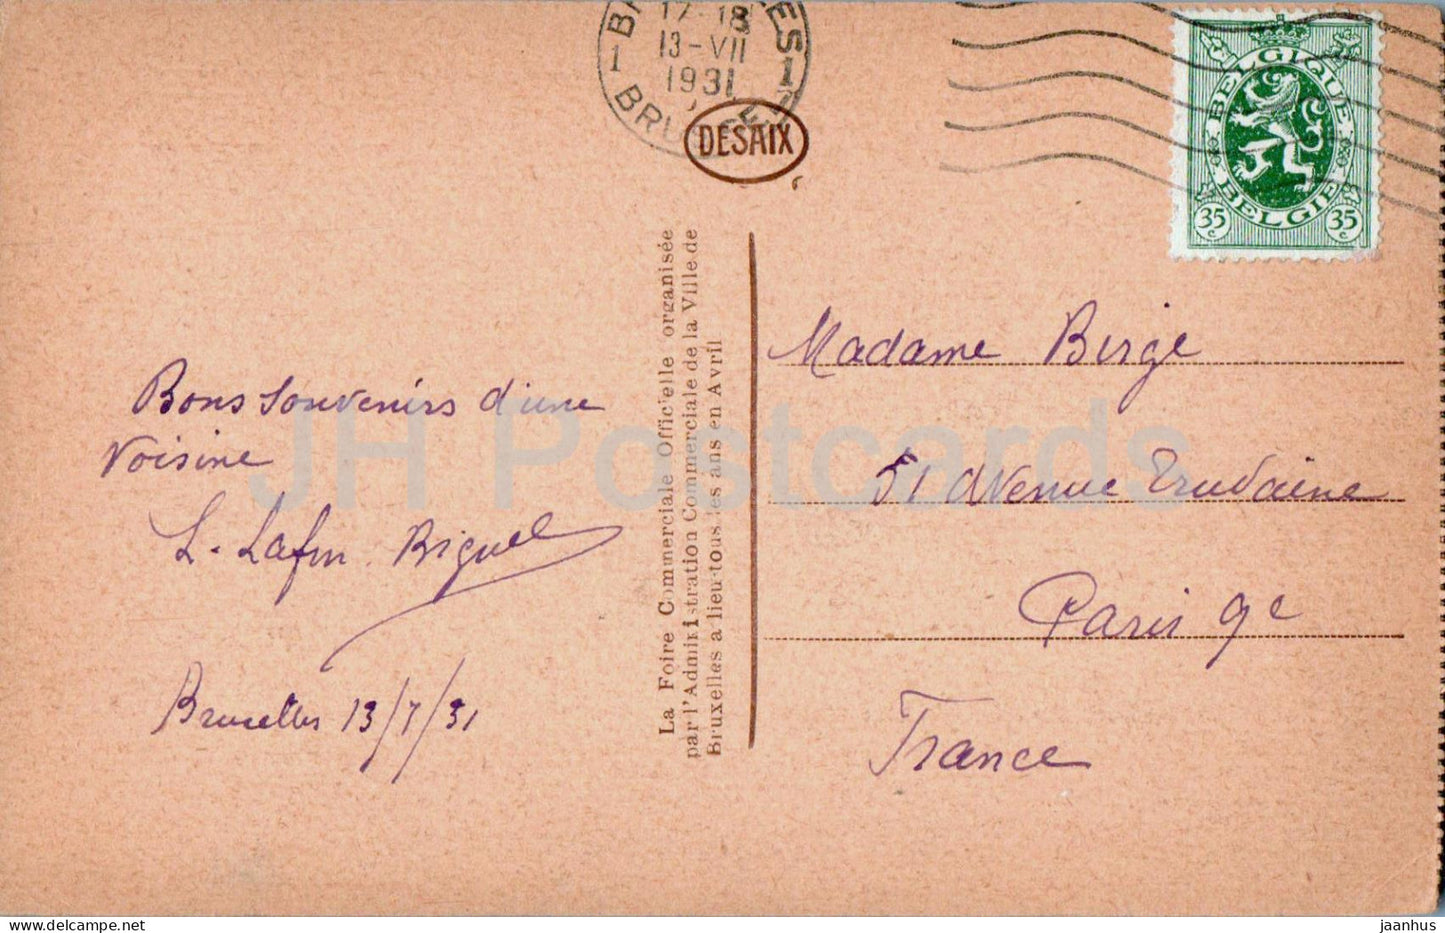 17-18
13-VII
1931
1
1
DESAIX
BELGIQUE
BELGIE
35 c
35 c
La Foire Commerciale Offic'elle organisée
par l'Administration Commerciale de la Ville de
Bruxelles a lieu tous les ans en Avril
Bons souvenirs d'une
Voisine
L. Lafon
Bruxelles 13/7/31
Madame Berge
51 Avenue Trudaine
Paris 9e
France
JH Postcards
jaanhus